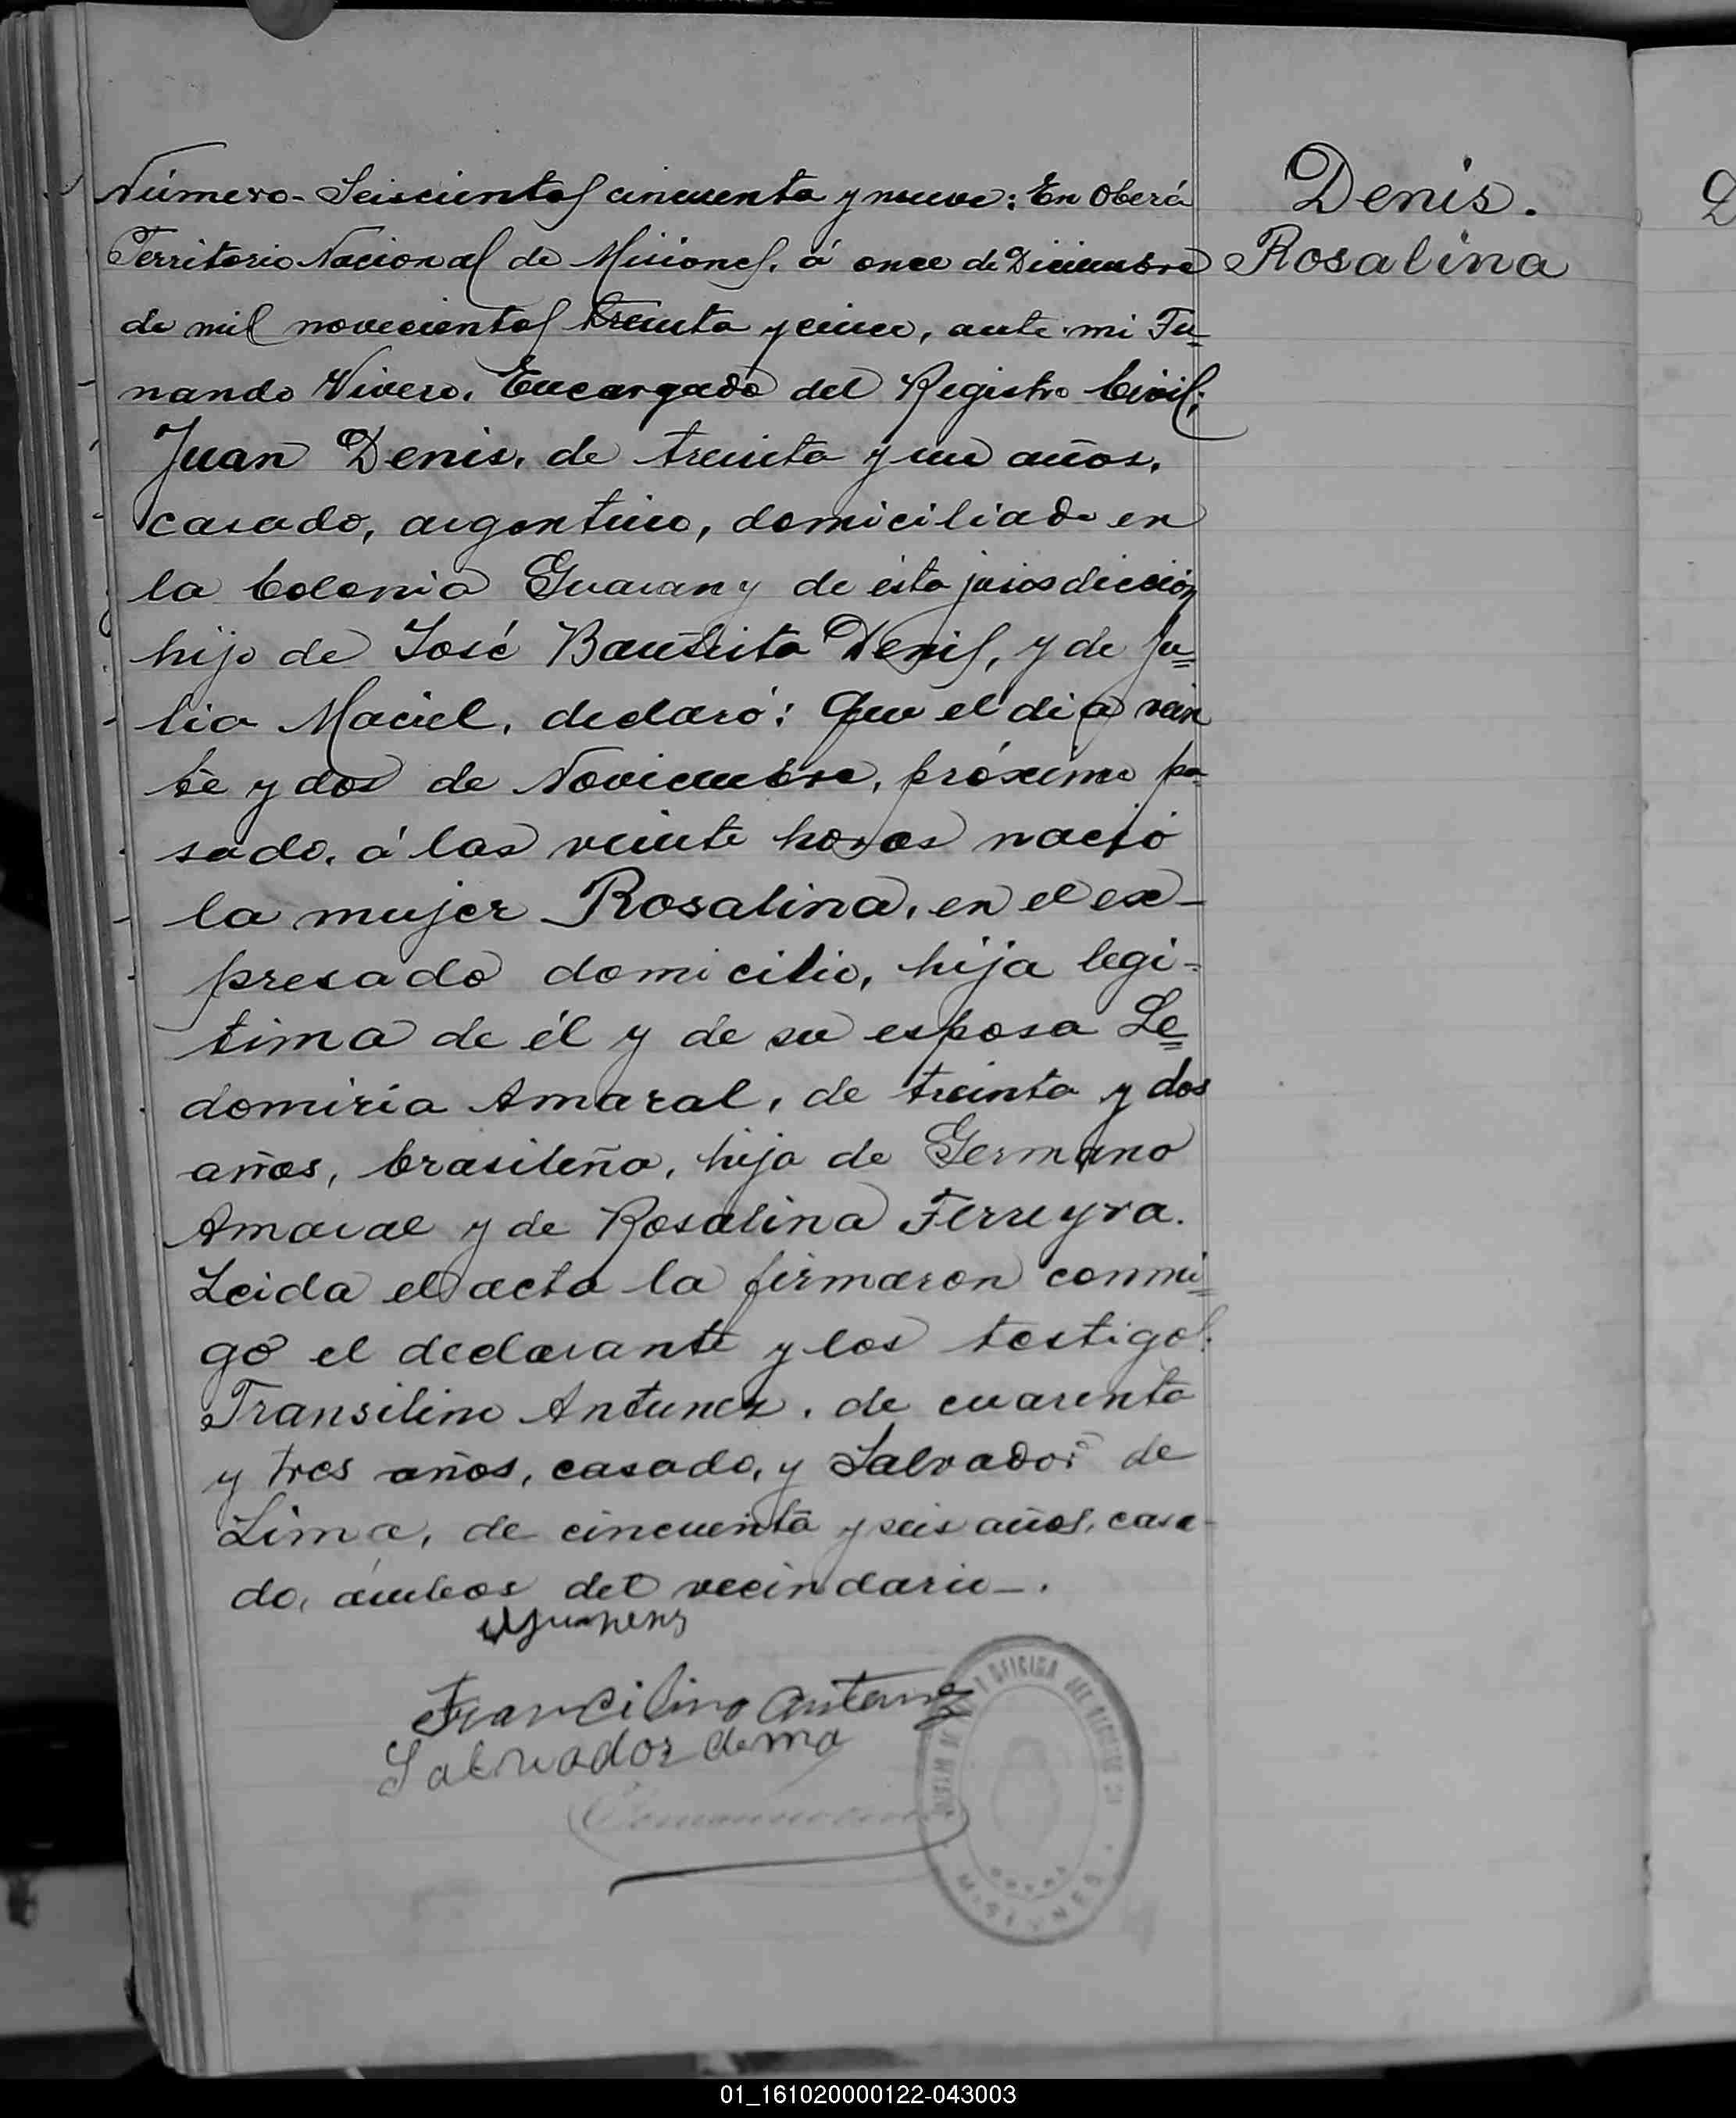 Número- Seiscientos cincuenta y nueve: En Oberá
Territorio Nacional de Misiones, á once de Diciembre
de mil novecientos treinta y cinco, ante mi Fu=
nando Vivero, Encargado del Registro Civil;
Juan Denis, de treinta y un años,
casado, argentino, domiciliado en
la Colonia Guarany de ésta jurosdicción
hijo de José Bautista Denis, y de Ju=
lia Maciel, declaró: Que el dia vein
te y dos de Noviembre, próximo pa-
sado, á las veinte horas nació
la mujer Rosalina, en el ex-
presado domicilio, hija legi-
tima de él y de su esposa Le=
domiria Amaral, de treinta y dos
años, brasileña, hija de Germano
Amaral y de Rosalina Ferreyra.
Leida el acta la firmaron conmi=
go el declarante y los testigos:
Transilino Antunez, de cuarenta
y tres años, casado, y Salvador de
Lima, de cincuenta y seis años, casa-
do, ámbos del vecindario-.
Francilino Antunez
Salvador
MISIONES
Denis.
Rosalina
01_161020000122-043003